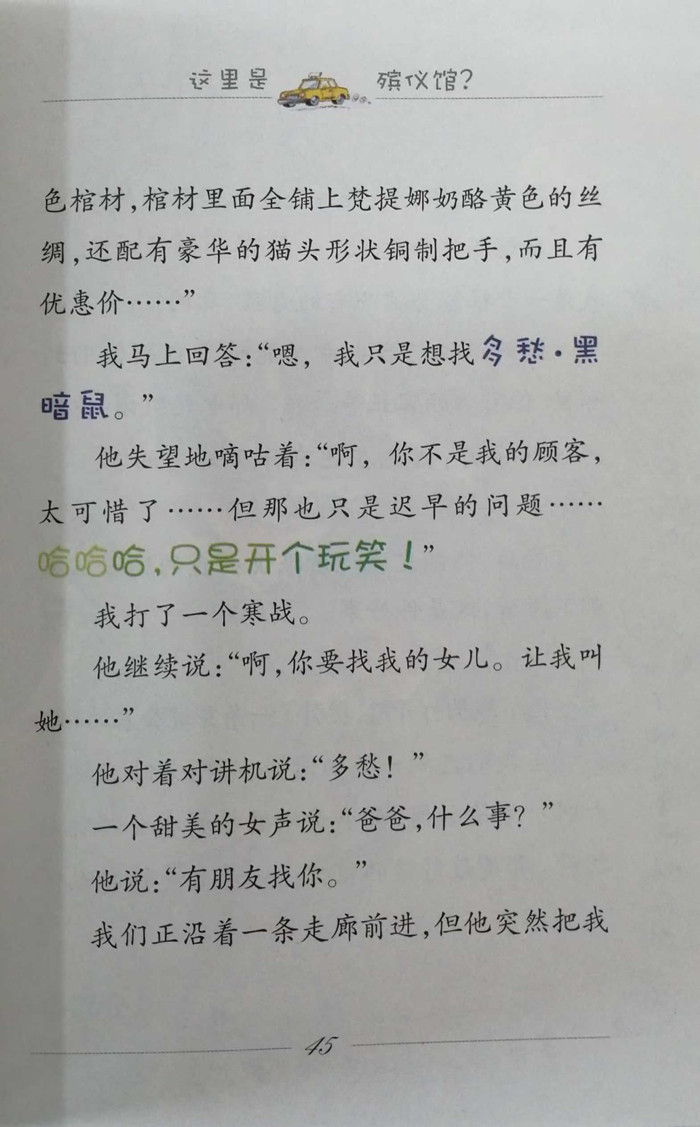 这里是 殡仪馆?
色棺材,棺材里面全铺上梵提娜奶酪黄色的丝
绸,还配有豪华的猫头形状铜制把手,而且有
优惠价……”
我马上回答:“嗯，我只是想找多愁·黑
暗鼠。”
他失望地嘀咕着:“啊，你不是我的顾客，
太可惜了……但那也只是迟早的问题……
哈哈哈,只是开个玩笑!”
我打了一个寒战。
他继续说:“啊,你要找我的女儿。让我叫
她……”
他对着对讲机说:“多愁!”
一个甜美的女声说:“爸爸,什么事?”
他说:“有朋友找你。”
我们正沿着一条走廊前进,但他突然把我
45